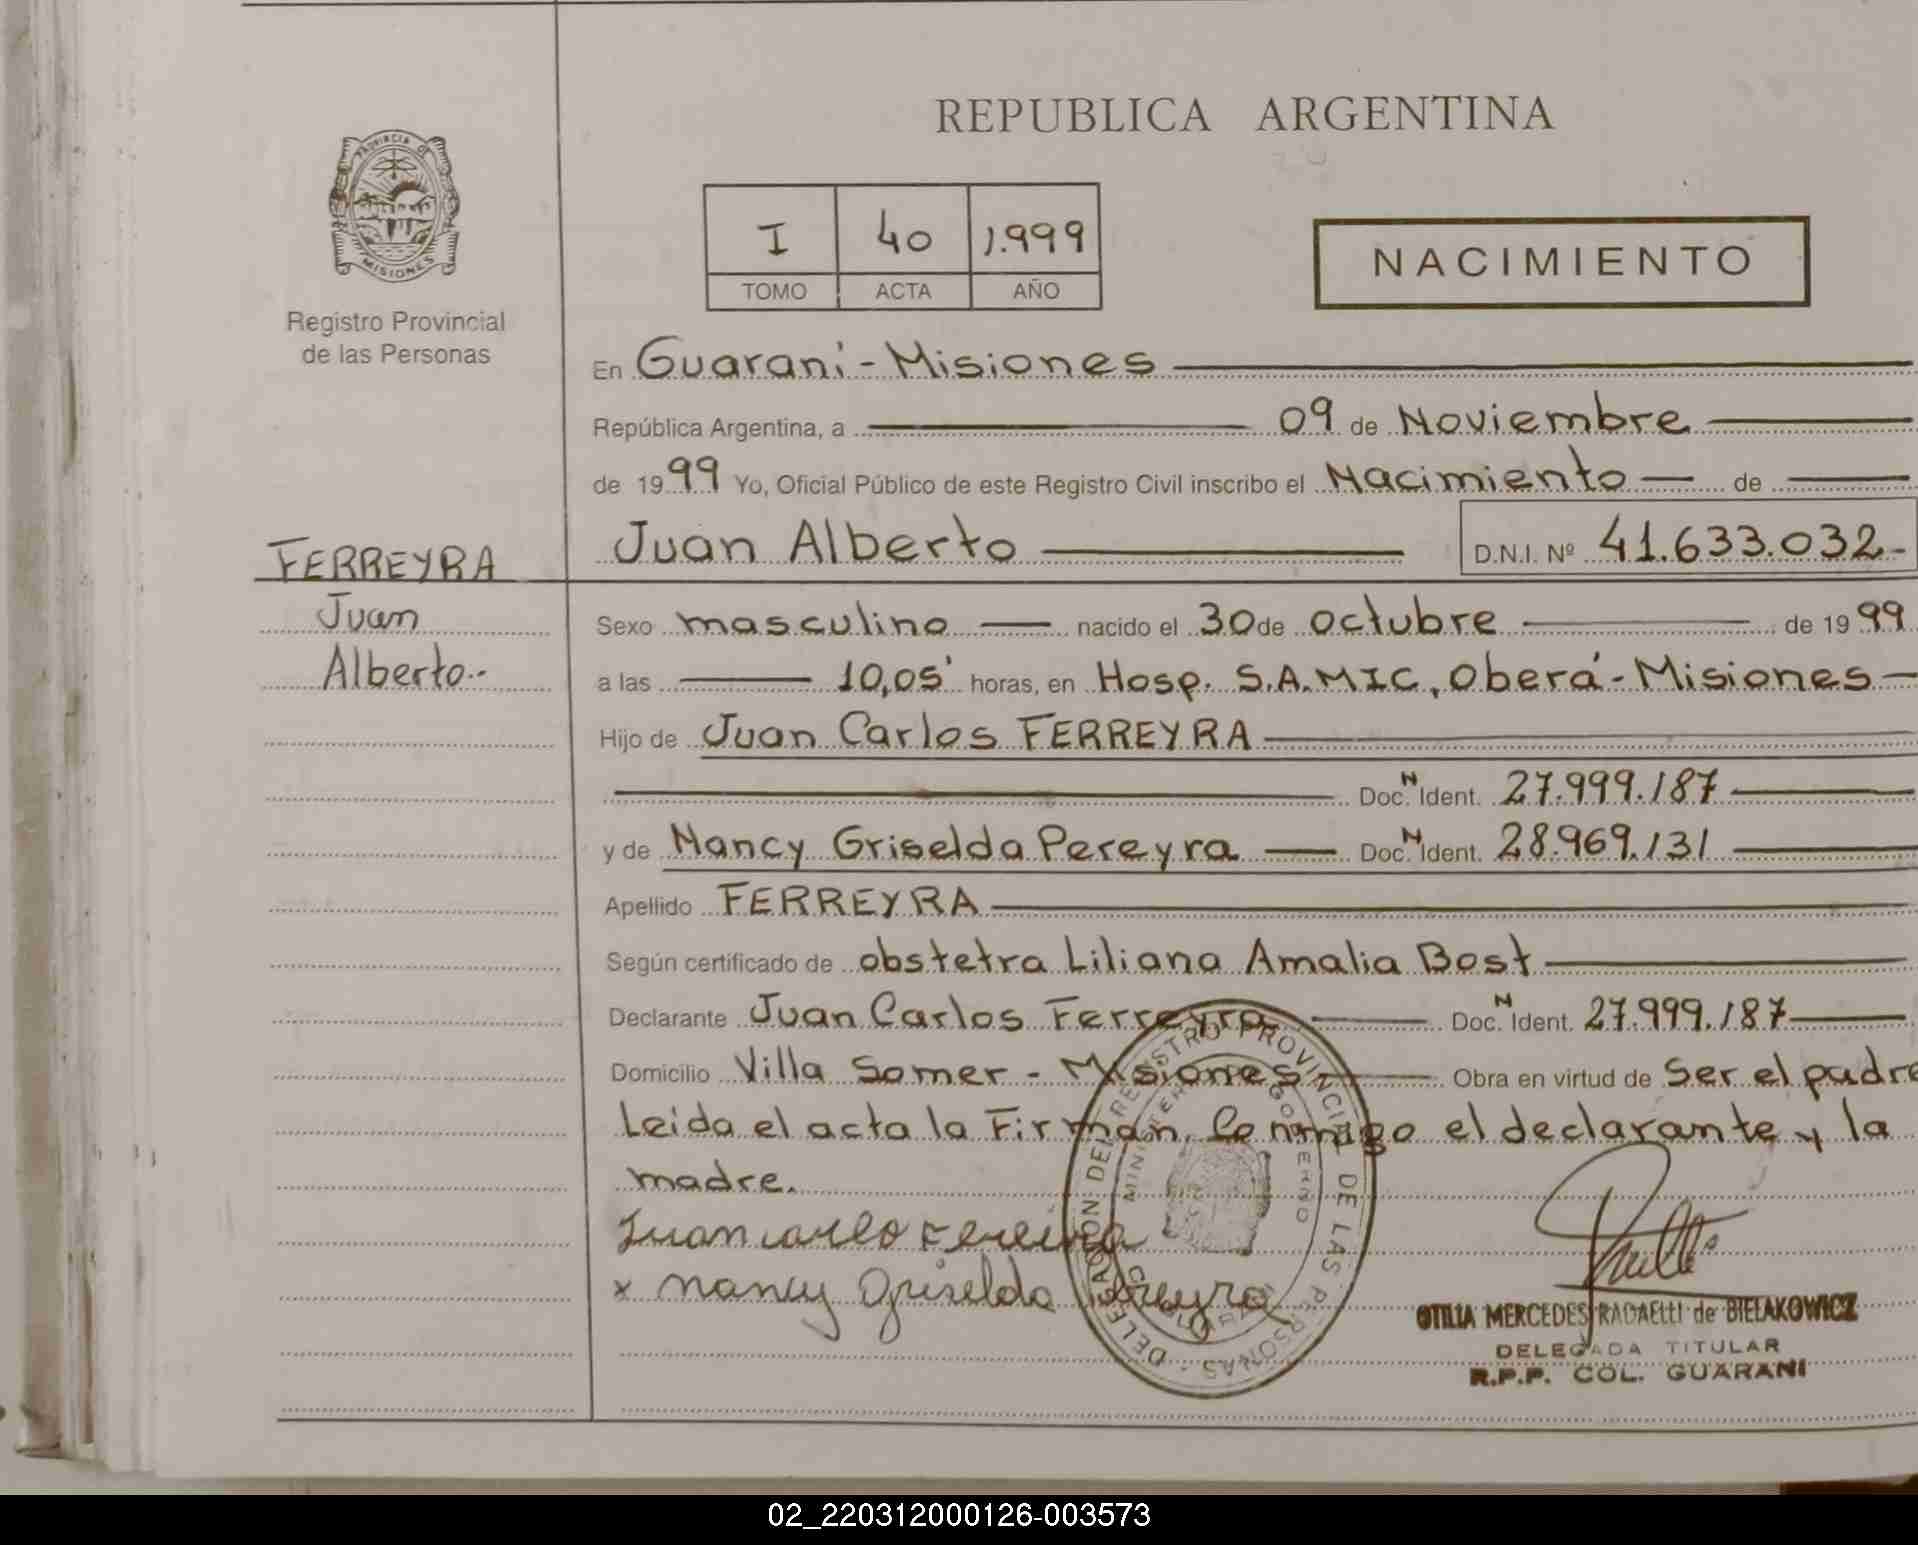 REPUBLICA ARGENTINA
PROVINCIA DE
MISIONES
Registro Provincial
de las Personas
I 40 1.999
TOMO ACTA AÑO
NACIMIENTO
En Guaraní - Misiones
República Argentina, a 09 de Noviembre
de 1999 Yo, Oficial Público de este Registro Civil inscribo el Nacimiento de
FERREYRA
Juan
Alberto.-
Juan Alberto D.N.I. Nº 41.633.032-
Sexo masculino nacido el 30 de octubre de 1999
a las 10,05' horas, en Hosp. S.A.MIC, Oberá - Misiones
Hijo de Juan Carlos FERREYRA
Doc. N Ident. 27.999.187
y de Nancy Griselda Pereyra Doc. N Ident. 28.969.131
Apellido FERREYRA
Según certificado de obstetra Liliana Amalia Bost
Declarante Juan Carlos Ferreyra Doc. N Ident. 27.999.187
Domicilio Villa Somer - Misiones Obra en virtud de ser el padre
Leida el acta la Firman Conmigo el declarante y la
madre.
Juan carlo Fereira
x Nancy Griselda Pereyra
DELEGACION DEL REGISTRO PROVINCIAL DE LAS PERSONAS
MINISTERIO GOBIERNO
OTILIA MERCEDES RADAELLI de BIELAKOWICZ
DELEGADA TITULAR
R.P.P. COL. GUARANI
02_220312000126-003573